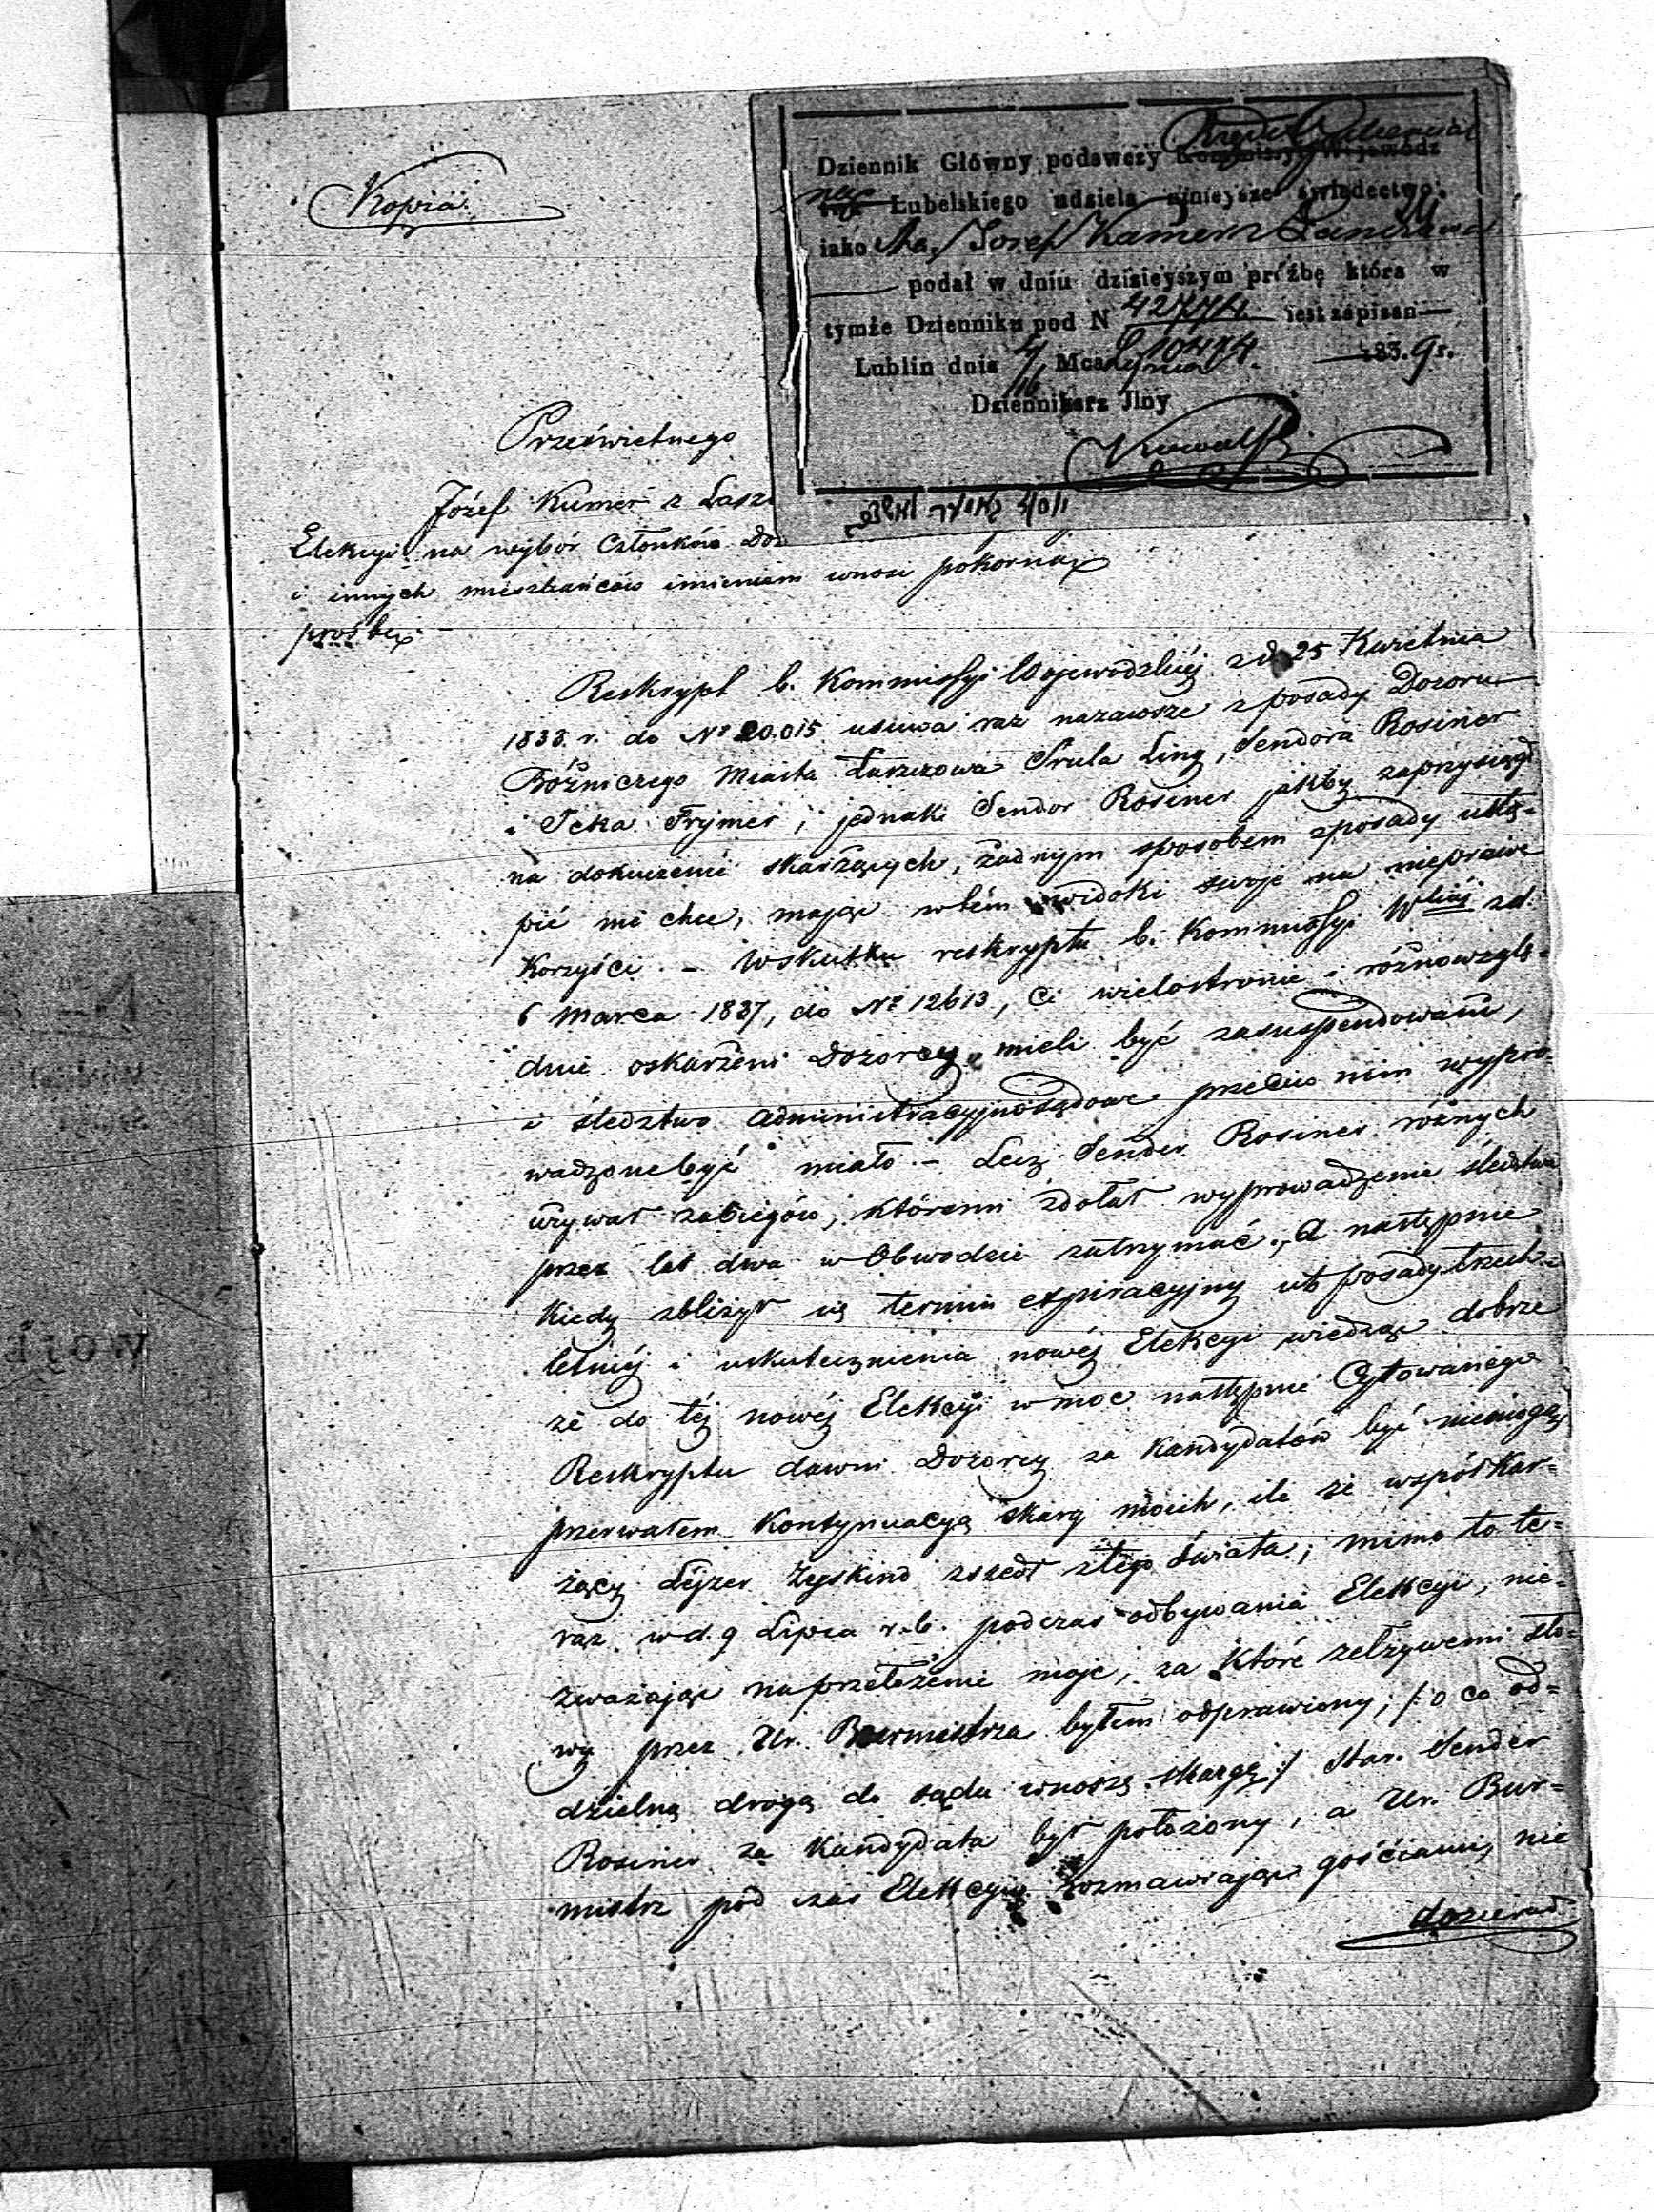 Kopia
Dziennik Główny podawczy Kommissyi Wojewodz
Lubelskiego udziela ninieysze świadectwo,
iako Josef Kamerz
podał w dniu dzisieyszym prźbę która w
tymże Dzienniku pod N iest zapisan—
Lublin dnia Mca 183.9 r.
Dziennikarz Jlny
Prześwietnego
Józef Kumer z Łasz
Elekcyi na wybór Członków Doz
i innych mieszkańców imieniem wnosi pokorną
prośbę.
Reskrypt b. Kommissyi Wojewodzkiéj z d. 25 Kwietnia
1838. r. do Nº 20.015 usuwa raz nazawsze z posady Dozoru
Bóżniczego Miasta Łaszczowa Srula Ling, Sendora Rosiner
i Icka Frymer; jednak Sendor Rosiner jakby zaprzysiągł
na dokuczenie skarżących, żadnym sposobem z posady ustą-
pić nie chce, mając w tém widoki swoje na nieprawe
Korzyści. – W skutku reskryptu b. Kommissyi Wtkiéj z d.
6 Marca 1837, do Nº 12613, Ci wielostronie i różnowzglę-
dnie oskarżeni Dozorcy mieli być zasuspendowani,
i śledztwo administracyjnosądowe przeciw nim wypro-
wadzone być miało. – Lecz Sender Rosiner różnych
używał zabiegów, któremi zdołał wyprowadzenie śledztwa
przez lat dwa w Obwodzie zatrzymać., A następnie
Kiedy zbliżył się termin expiracyjny posady trzech-
letniéj i uskutecznienia nowéj Elekcyi, wiedząc dobrze
że do téj nowéj Elekcyi w moc następnie Cytowanego
Reskryptu dawni Dozorcy za kandydatów być niemogą,
przerwałem Kontynuacyą skarg moich, ile że współskar-
żący Lejzer Zyskind zszedł z tego świata; mimo to te-
raz w d. 9 Lipca r. b. podczas odbywania Elekcyi, nie-
zważając na przełożenie moje, za które zelżywemi sło-
wy przez Ur. Burmistrza byłem odprawiony; /: o co od-
dzielną drogą do sądu wnoszę skargę :/ Star. Sender
Rosiner za kandydata był położony, a Ur. Bur-
mistrz pod czas Elekcyi rozmawiając gośćiami, nie
dozierał